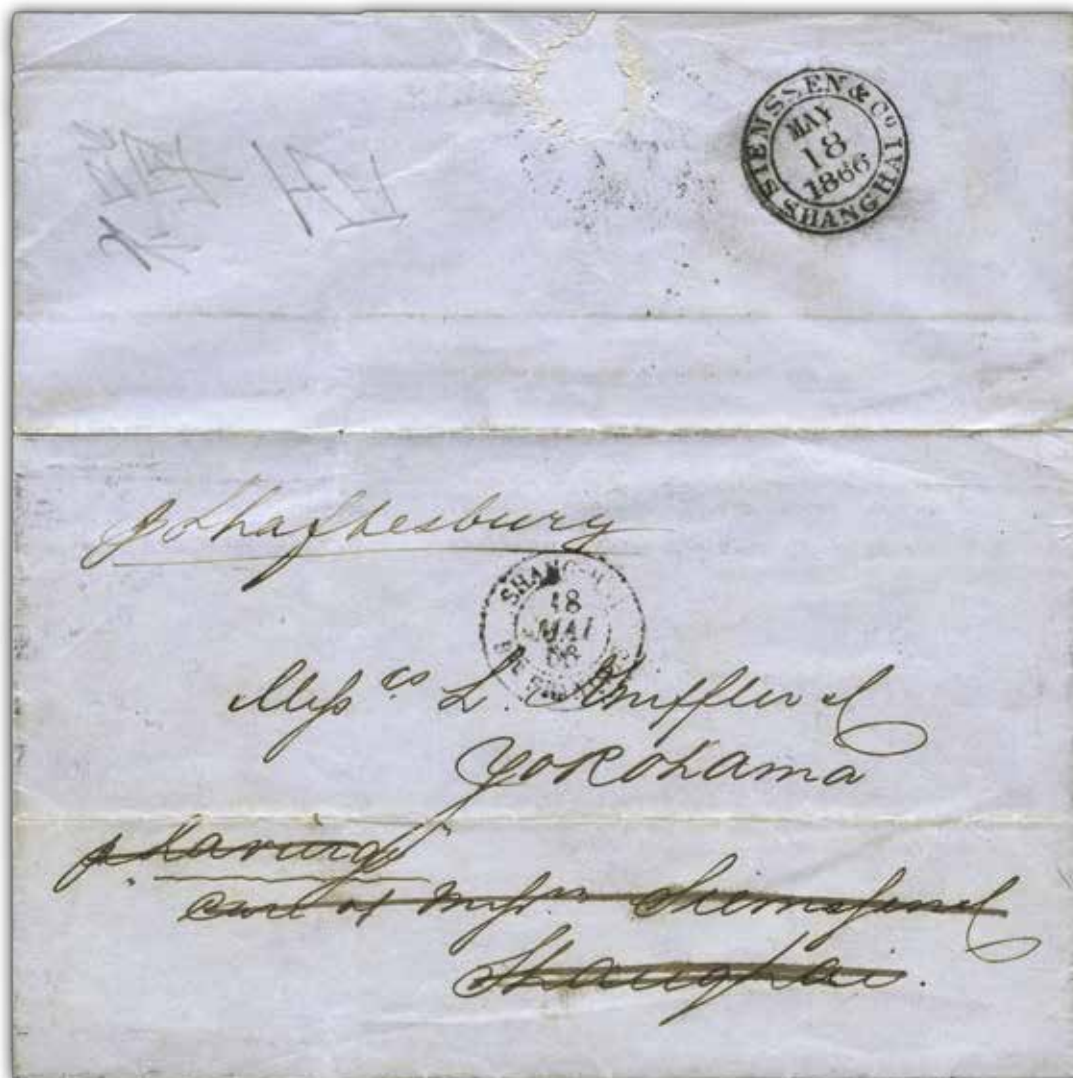 SIEMSSEN & Co
MAY
18
1866
SHANGHAI
p Shaftesbury
SHANG-HAI
18
MAI
66
Messrs L. Kniffler &
Yokohama
care of Messrs Siemssen &
Shanghai.